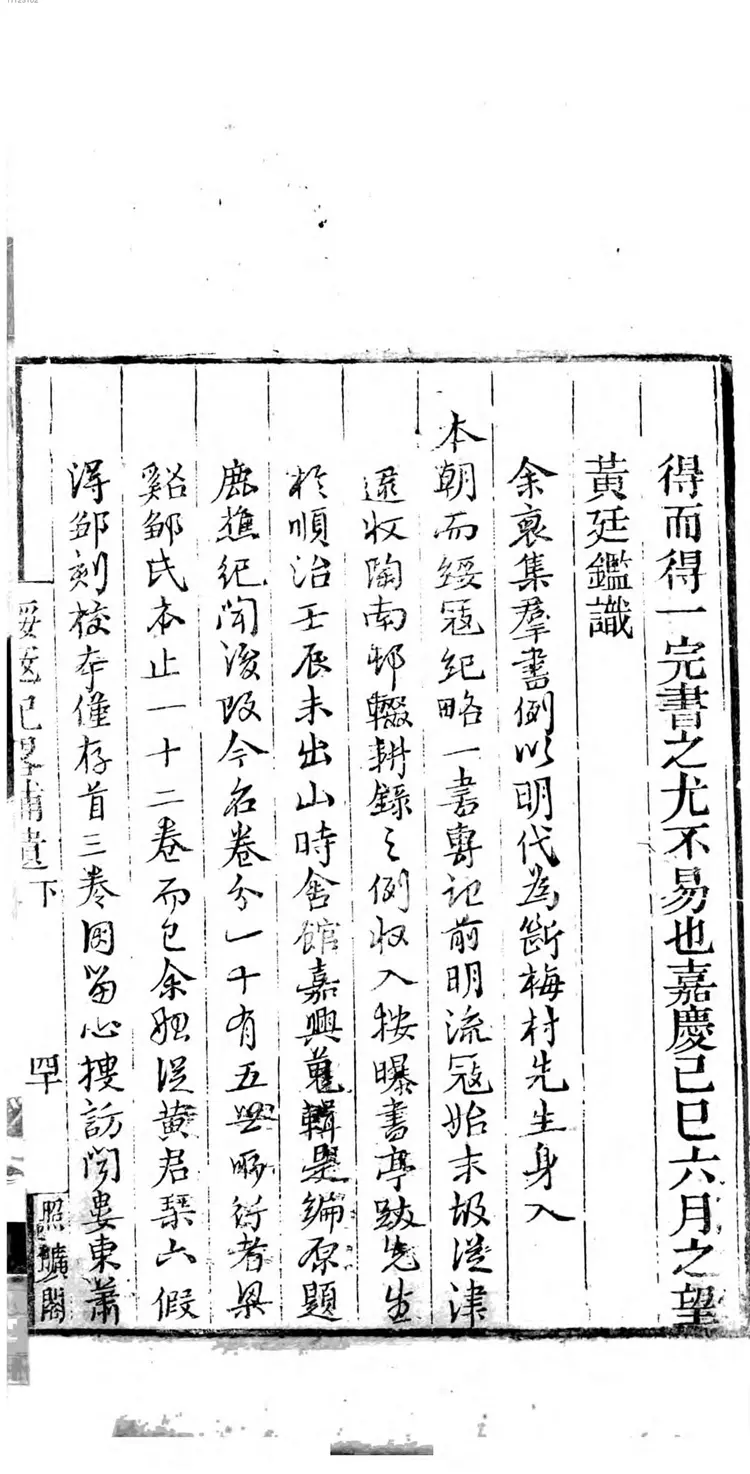 得而得一完書之尤不易也嘉慶己巳六月之望
黃廷鑑識
余裒集羣書例以明代為斷梅村先生身入
本朝而綏寇紀略一書專記前明流寇始末故從津
逮收陶南邨輟耕錄之例收入按曝書亭跋先生
於順治壬辰未出山時舍館嘉興蒐輯是編原題
鹿樵紀聞後改今名卷分一十有五
行者梁
谿鄒氏本止一十二卷而已余
從黃君琴六假
得鄒刻校本僅存首三卷因留心搜訪聞婁東蕭
綏寇紀畧補遺下
四十
照曠閣